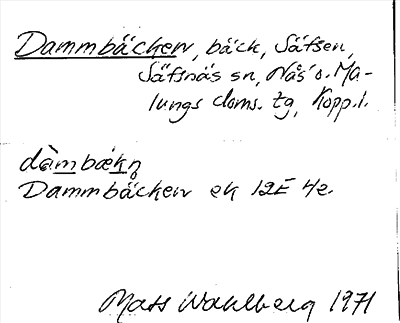 Dammbäcken, bäck, Säfsen,
Säfsnäs sn, Nås o. Ma-
lungs doms. tg, Kopp. l.
dàmbækn̥
Dammbäcken ek 12E 4e.
Mats Wahlberg 1971